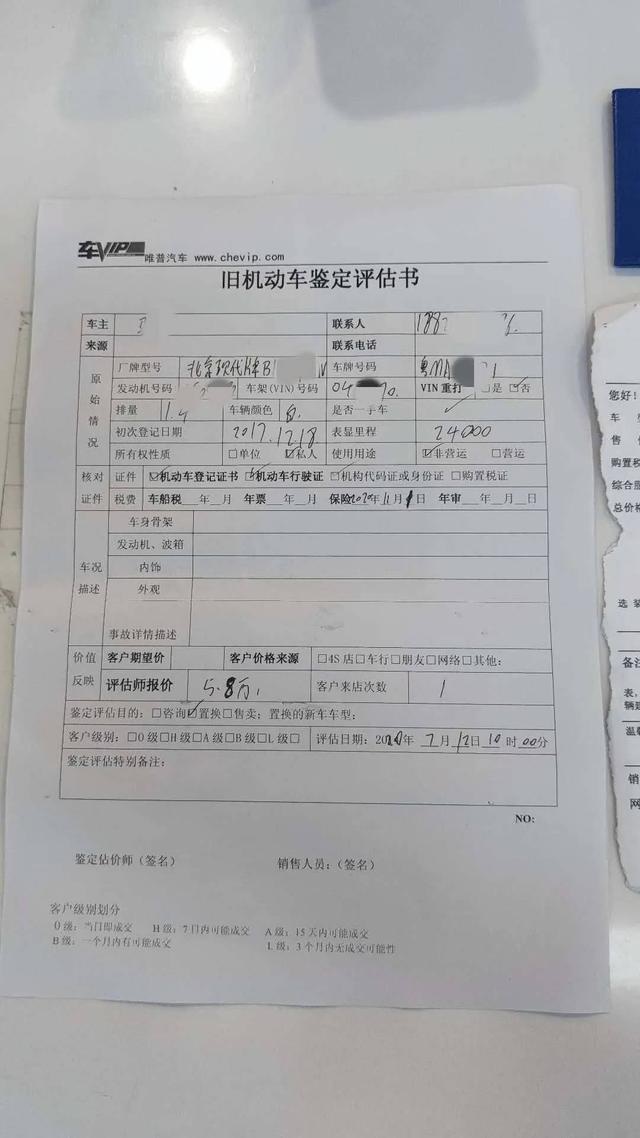 车VIP 唯普汽车 www.chevip.com
旧机动车鉴定评估书
车主 联系人 188
来源 联系电话
原始情况
厂牌型号 北京现代 车牌号码 粤MA 1
发动机号码 车架(VIN)号码 04 70. VIN 重打 □是 ☑否
排量 1.4 车辆颜色 白. 是否一手车 ✓
初次登记日期 2017.12.18. 表显里程 24000
所有权性质 □单位 ☑私人 使用用途 ☑非营运 □营运
核对证件
证件 ☑机动车登记证书 ☑机动车行驶证 □机构代码证或身份证 □购置税证
税费 车船税__年__月 年票__年__月 保险2020年11月1日 年审__年__月__日
车况描述
车身骨架
发动机、波箱
内饰
外观
事故详情描述
价值反映
客户期望价 客户价格来源 □4S店□车行□朋友□网络□其他:
评估师报价 5.8万. 客户来店次数 1
鉴定评估目的: □咨询☑置换□售卖; 置换的新车车型:
客户级别: □O级□H级□A级□B级□L级□ 评估日期: 2020年 7月12日10时00分
鉴定评估特别备注:
NO:
鉴定估价师(签名) 销售人员:(签名)
客户级别划分
O级: 当日即成交 H级: 7日内可能成交 A级: 15天内可能成交
B级: 一个月内有可能成交 L级: 3个月内无成交可能性
您好!
车
售
购置税
综合服
总价格
选装
备注
表,
辆建
温馨
销
网